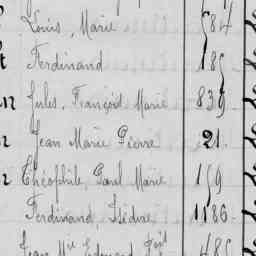 Louis, Marie 584
t Ferdinand 185
n Jules, François Marie 839
n Jean Marie Pierre 21.
n Théophile, Paul Marie 159
Ferdinand, Isidore 1186.
Jean Mie Edouard 485